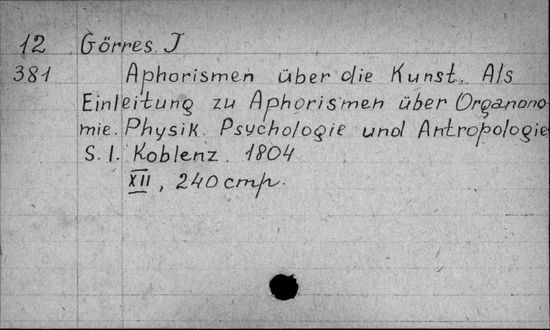 12 Görres. J
381 Aphorismen über die Kunst. Als
Einleitung zu Aphorismen über Organono
mie. Physik. Psychologie und Antropologie
S. l. Koblenz. 1804
XII, 240 стр.